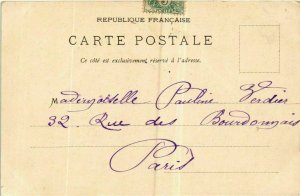 RÉPUBLIQUE FRANÇAISE
CARTE POSTALE
Ce côté est exclusivement réservé à l'adresse.
Mademoiselle Pauline Verdier
32, Rue des Bourdonnais
Paris